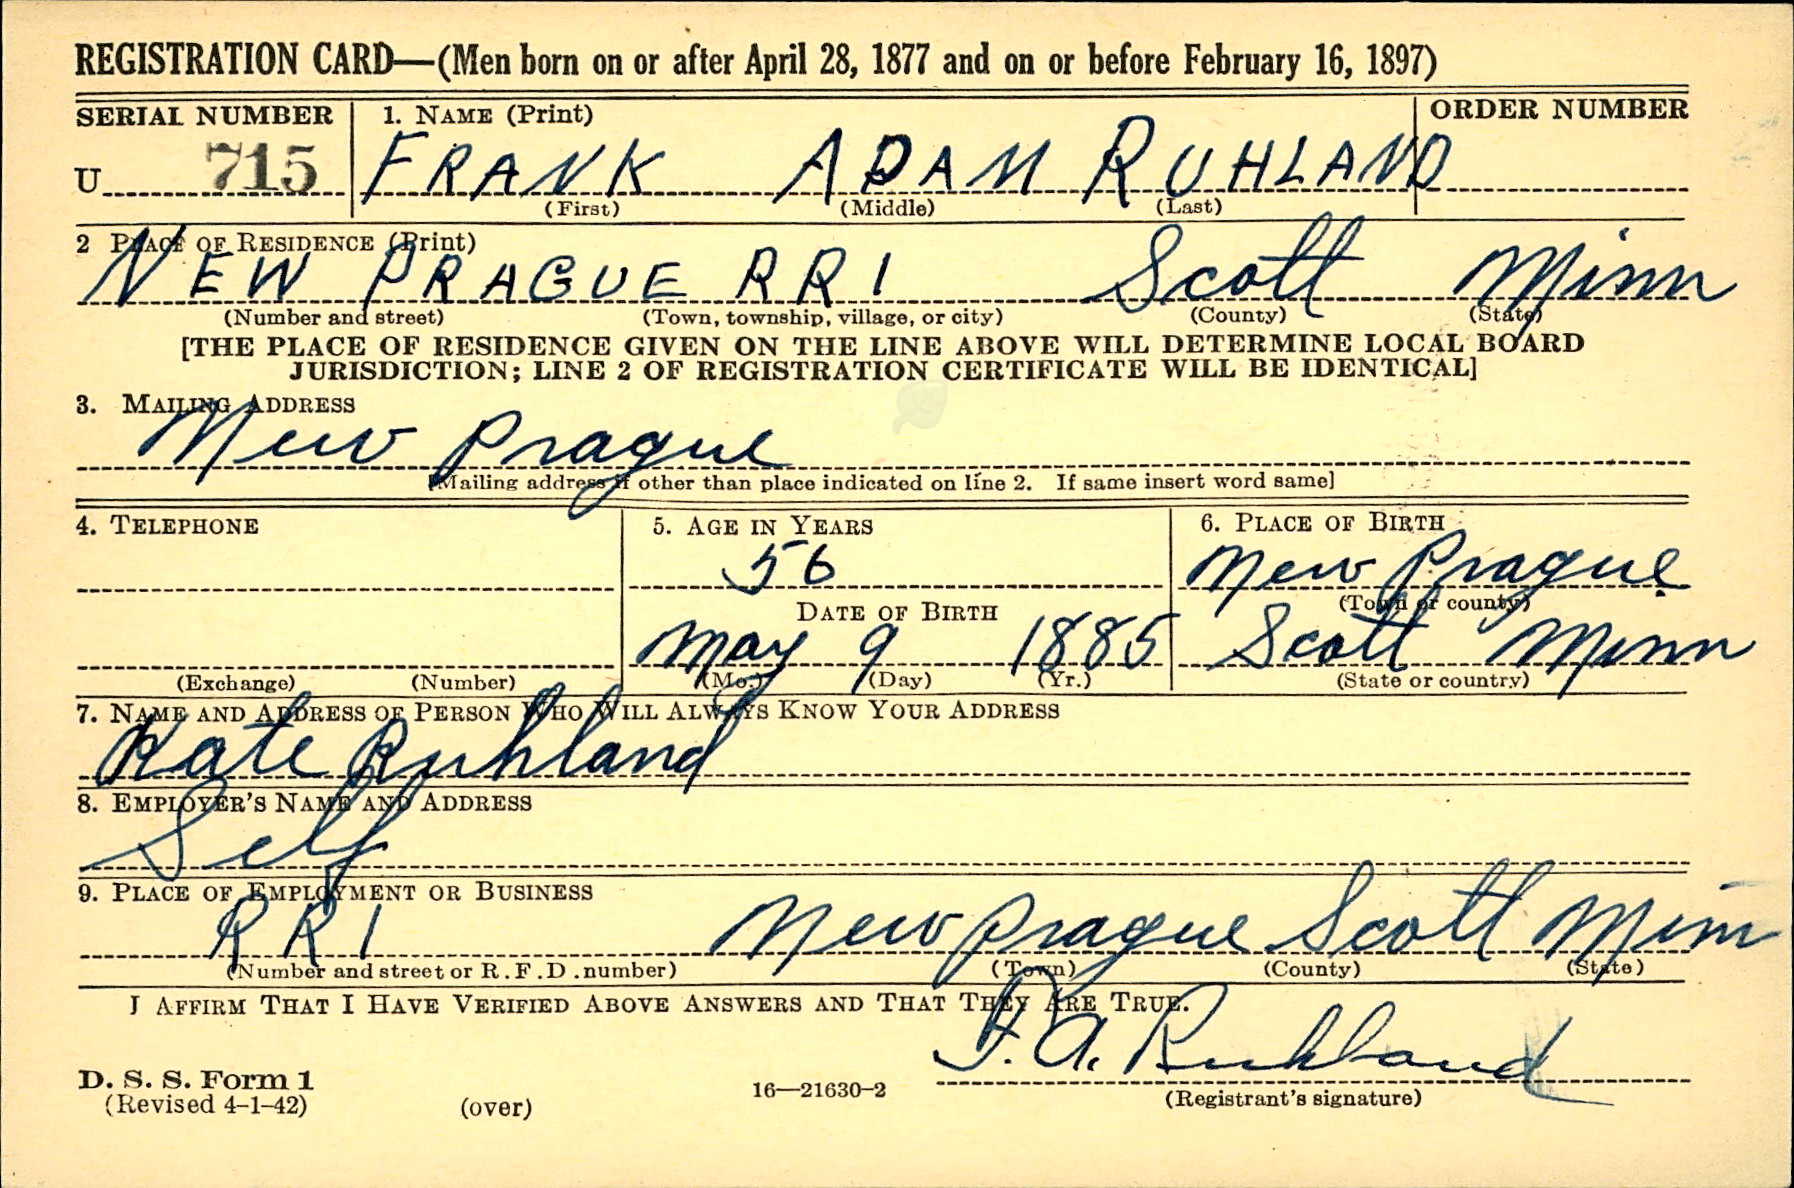 REGISTRATION CARD—(Men born on or after April 28, 1877 and on or before February 16, 1897)
SERIAL NUMBER 1. NAME (Print) ORDER NUMBER
U 715 FRANK ADAM RUHLAND
(First) (Middle) (Last)
2 PLACE OF RESIDENCE (Print)
NEW PRAGUE RR1 Scott Minn
(Number and street) (Town, township, village, or city) (County) (State)
[THE PLACE OF RESIDENCE GIVEN ON THE LINE ABOVE WILL DETERMINE LOCAL BOARD
JURISDICTION; LINE 2 OF REGISTRATION CERTIFICATE WILL BE IDENTICAL]
3. MAILING ADDRESS
New Prague
[Mailing address if other than place indicated on line 2. If same insert word same]
4. TELEPHONE 5. AGE IN YEARS 6. PLACE OF BIRTH
56 New Prague
DATE OF BIRTH (Town or county)
May 9 1885 Scott Minn
(Exchange) (Number) (Mo.) (Day) (Yr.) (State or country)
7. NAME AND ADDRESS OF PERSON WHO WILL ALWAYS KNOW YOUR ADDRESS
Kate Ruhland
8. EMPLOYER'S NAME AND ADDRESS
Self
9. PLACE OF EMPLOYMENT OR BUSINESS
RR1 New Prague Scott Minn
(Number and street or R.F.D. number) (Town) (County) (State)
I AFFIRM THAT I HAVE VERIFIED ABOVE ANSWERS AND THAT THEY ARE TRUE.
F. A. Ruhland
D. S. S. Form 1
(Revised 4-1-42) (over) 16—21630-2 (Registrant's signature)